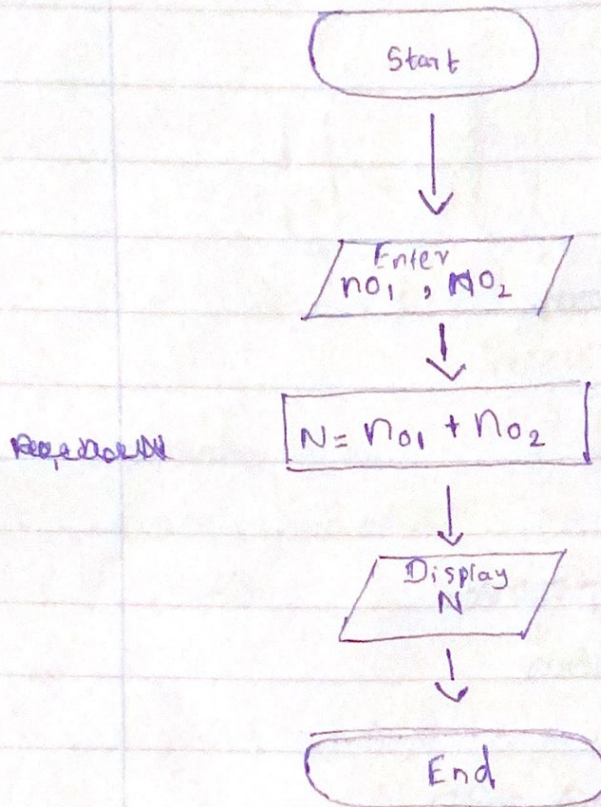 Start
Enter
no₁, NO₂
N = no₁ + no₂
Display
N
End